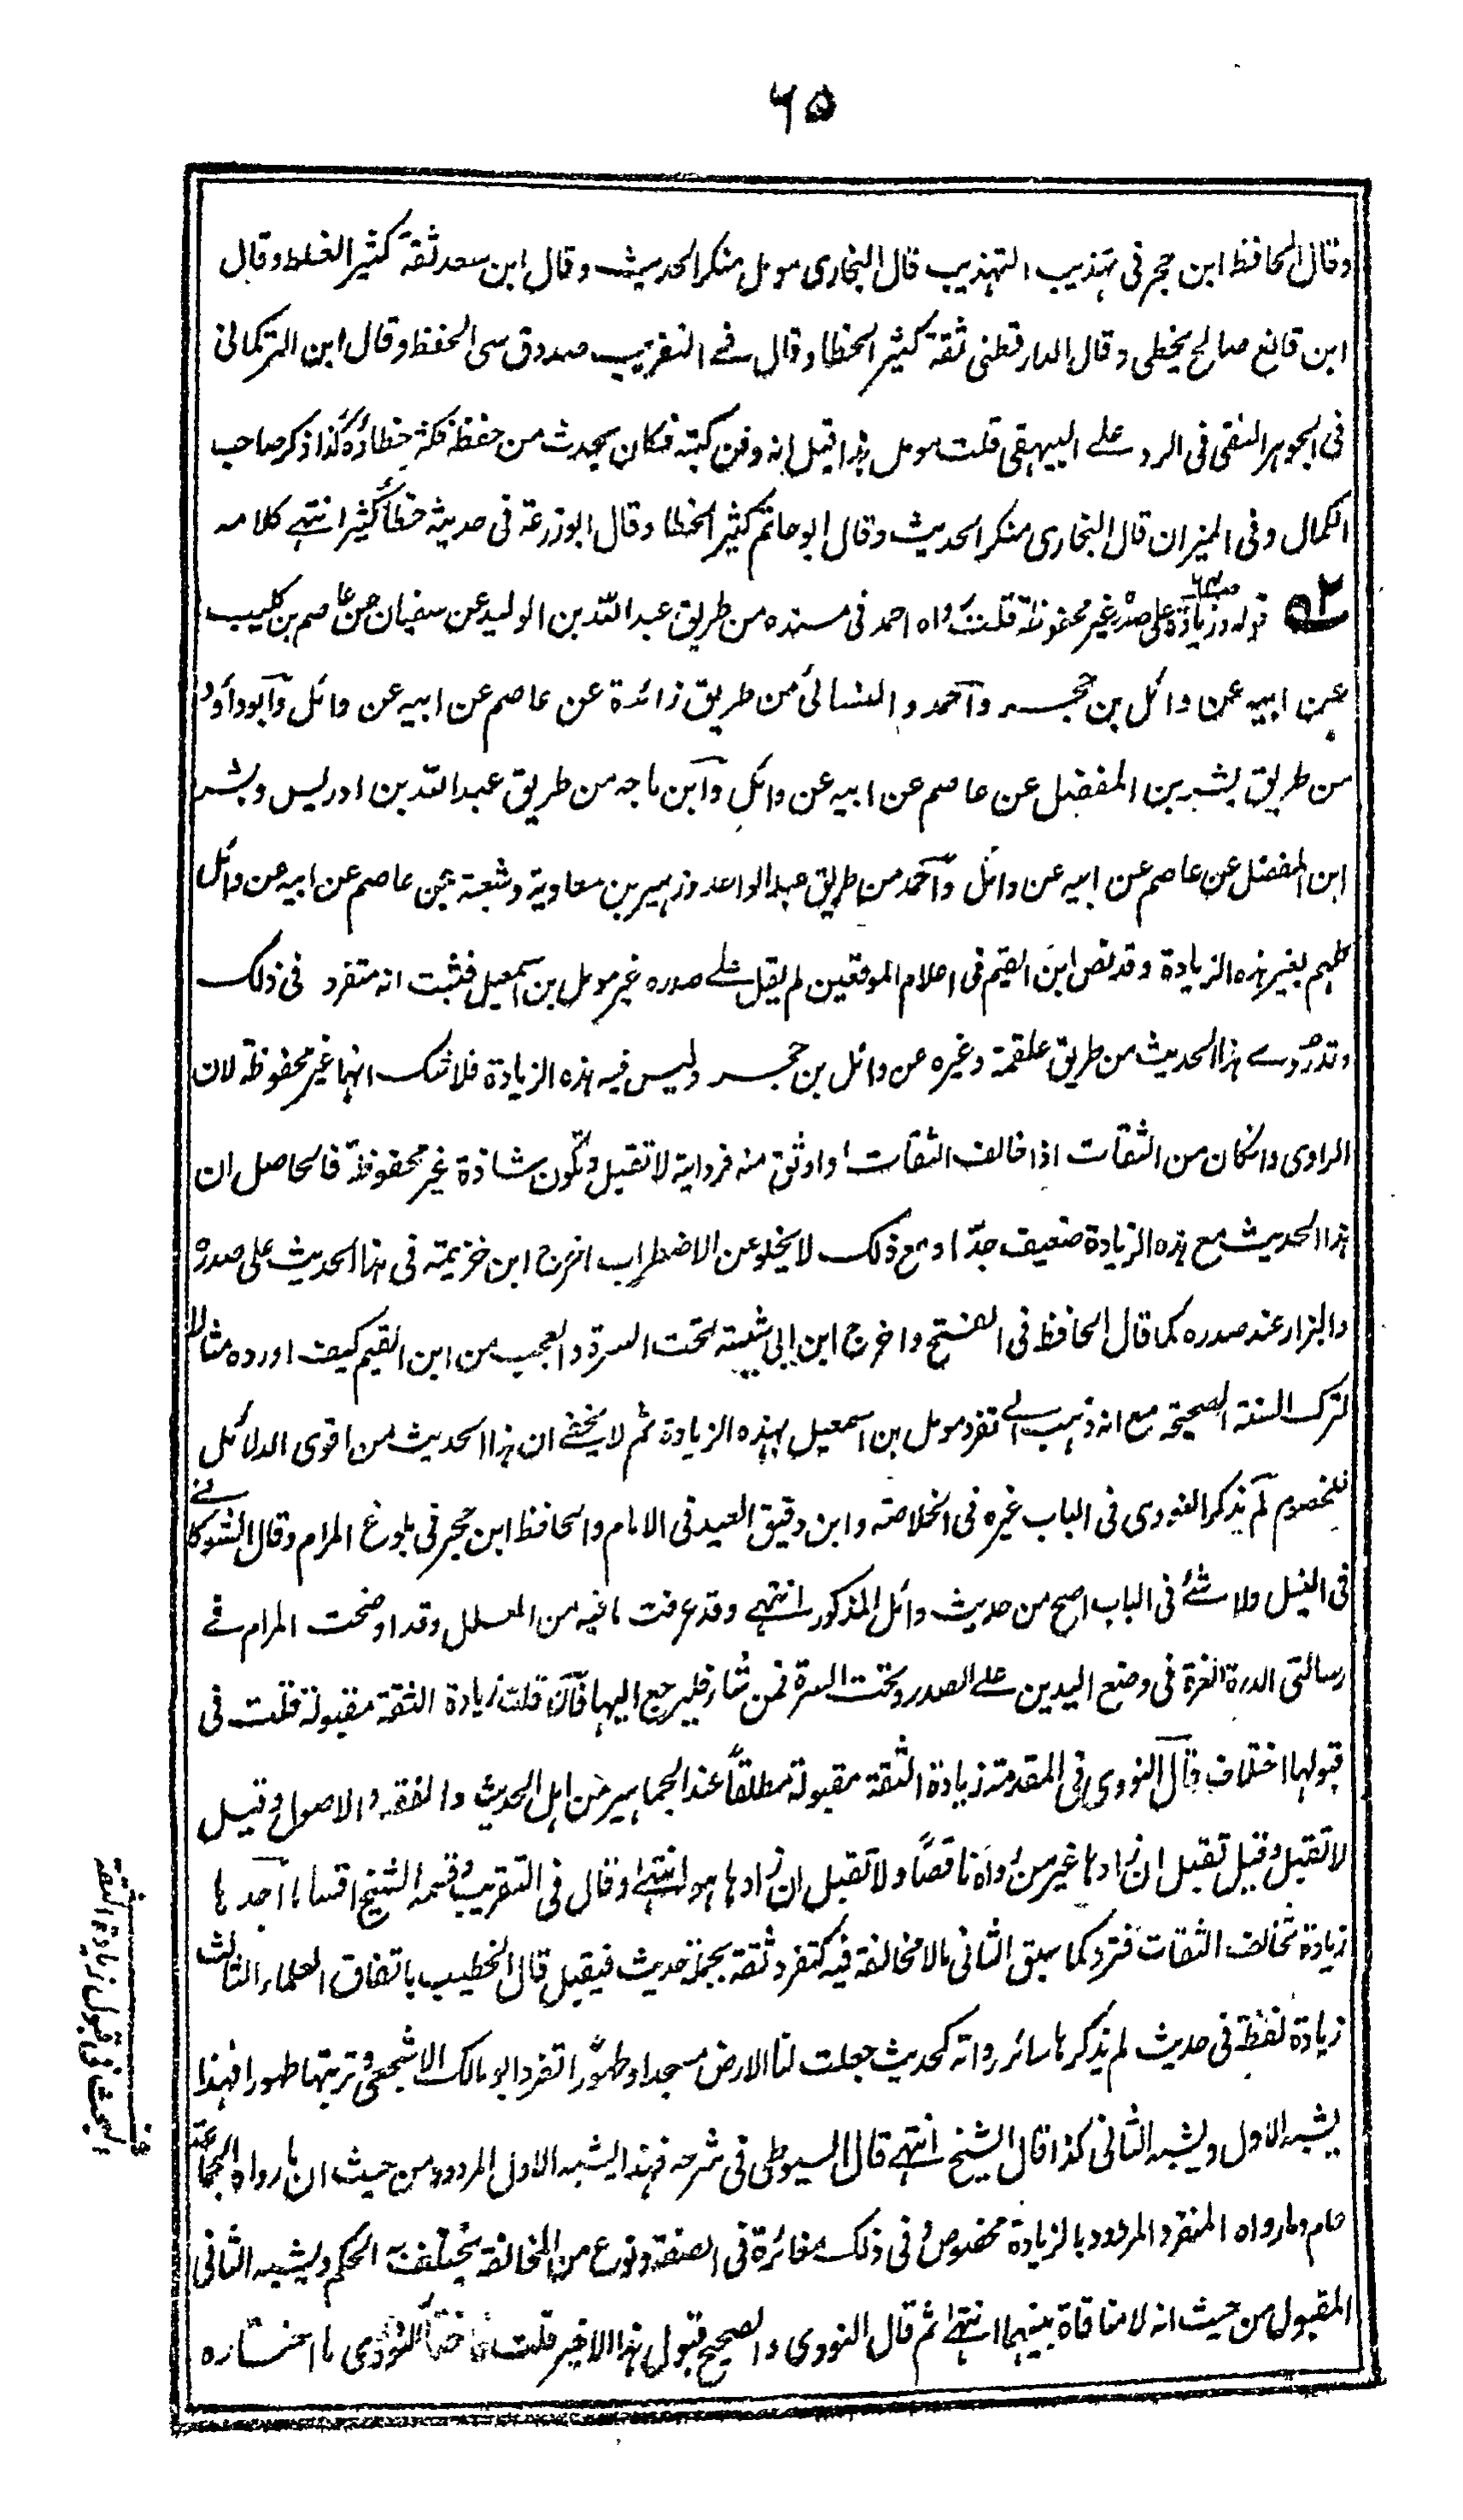 ٦٥
وقال الحافظ ابن حجر فی تهذیب التهذیب قال البخاری مومل منکر الحدیث وقال ابن سعد ثقة کثیر الغلط وقال
ابن قانع صالح یخطی وقال الدارقطنی ثقة کثیر الخطا وقال فے التقریب صدوق سی الحفظ وقال ابن الترکمانی
فی الجوهر النقی فی الرد علے البیهقی قلت مومل هذا قیل انه دفن کتبه فکان یحدث من حفظه فکثر خطاؤه کذا ذکر صاحب
الکمال وفی المیزان قال البخاری منکر الحدیث وقال ابو حاتم کثیر الخطا وقال ابو زرعة فی حدیثه خطأ کثیر انتهے کلامه
٥٢ قوله وزیادة علی صدره غیر محفوظة قلت رواه احمد فی مسنده من طریق عبد الله بن الولید عن سفیان عن عاصم بن کلیب
عن ابیه عن وائل بن حجر وآحمد والنسائی من طریق زائدة عن عاصم عن ابیه عن وائل وآبو داؤد
من طریق بشر بن المفضل عن عاصم عن ابیه عن وائل وآبن ماجه من طریق عبد الله بن ادریس وبشر
ابن المفضل عن عاصم عن ابیه عن وائل وآحمد من طریق عبد الواحد وزهیر بن معاویة وشعبة عن عاصم عن ابیه عن وائل
کلهم بغیر هذه الزیادة وقد نص ابن القیم فی اعلام الموقعین لم یقل علے صدره غیر مومل بن اسمعیل فثبت انه متفرد فی ذلک
وقد روے هذا الحدیث من طریق علقمة وغیره عن وائل بن حجر ولیس فیه هذه الزیادة فلا شک انها غیر محفوظة لان
الراوی وان کان من الثقات اذا خالف الثقات او اوثق منه فروایته لا تقبل وتکون شاذة غیر محفوظة فالحاصل ان
هذا الحدیث مع هذه الزیادة ضعیف جدّا ومع ذلک لا یخلو عن الاضطراب اخرج ابن خزیمة فی هذا الحدیث علی صدره
والبزار عند صدره کما قال الحافظ فی الفتح واخرج ابن ابی شیبة تحت السرة والعجب من ابن القیم کیف اورده مثالا
لترک السنة الصحیحة مع انه ذهب الے تفرد مومل بن اسمعیل بهذه الزیادة ثم لا یخفے ان هذا الحدیث من اقوی الدلائل
للخصوم لم یذکر النووی فی الباب غیره فی الخلاصة وابن دقیق العید فی الامام والحافظ ابن حجر فی بلوغ المرام وقال الشوکانے
فی النیل ولا شئ فی الباب اصح من حدیث وائل المذکور انتهے وقد عرفت ما فیه من العلل وقد اوضحت المرام فے
رسالتی الدرة الغرة فی وضع الیدین علے الصدر وتحت السرة فمن شاء فلیرجع الیها فآن قلت زیادة الثقة مقبولة قلت فی
قبولها اختلاف قآل النووی فی المقدمة زیادة الثقة مقبولة مطلقاً عند الجماهیر من اهل الحدیث والفقه والاصول وقیل
لا تقبل وقیل تقبل ان زادها غیر من رواه ناقصاً ولا تقبل ان زادها هو انتهے وقال فی التقریب وقسمه الشیخ اقساما آحدها
زیادة تخالف الثقات فترد کما سبق الثانی مالا مخالفة فیه کتفرد ثقة بجملة حدیث فیقبل قال الخطیب باتفاق العلماء الثالث
زیادة لفظة فی حدیث لم یذکرها سائر رواته کحدیث جعلت لنا الارض مسجدا وطهورا تفرد ابو مالک الاشجعی وتربتها طهورا فهذا
یشبه الاول ویشبه الثانی کذا قال الشیخ انتهے قال السیوطی فی شرحه فهذا یشبه الاول المردود من حیث ان ما رواه الجماعة
عام وما رواه المنفرد المردود بالزیادة مخصوص وفی ذلک مغائرة فی الصفة ونوع من المخالفة یختلف به الحکم ویشبه الثانی
المقبول من حیث انه لا منافاة بینهما انتهے ثم قال النووی والصحیح قبول هذا الاخیر قلت النووی ما اختاره
البحث فی قبول زیادة الثقة